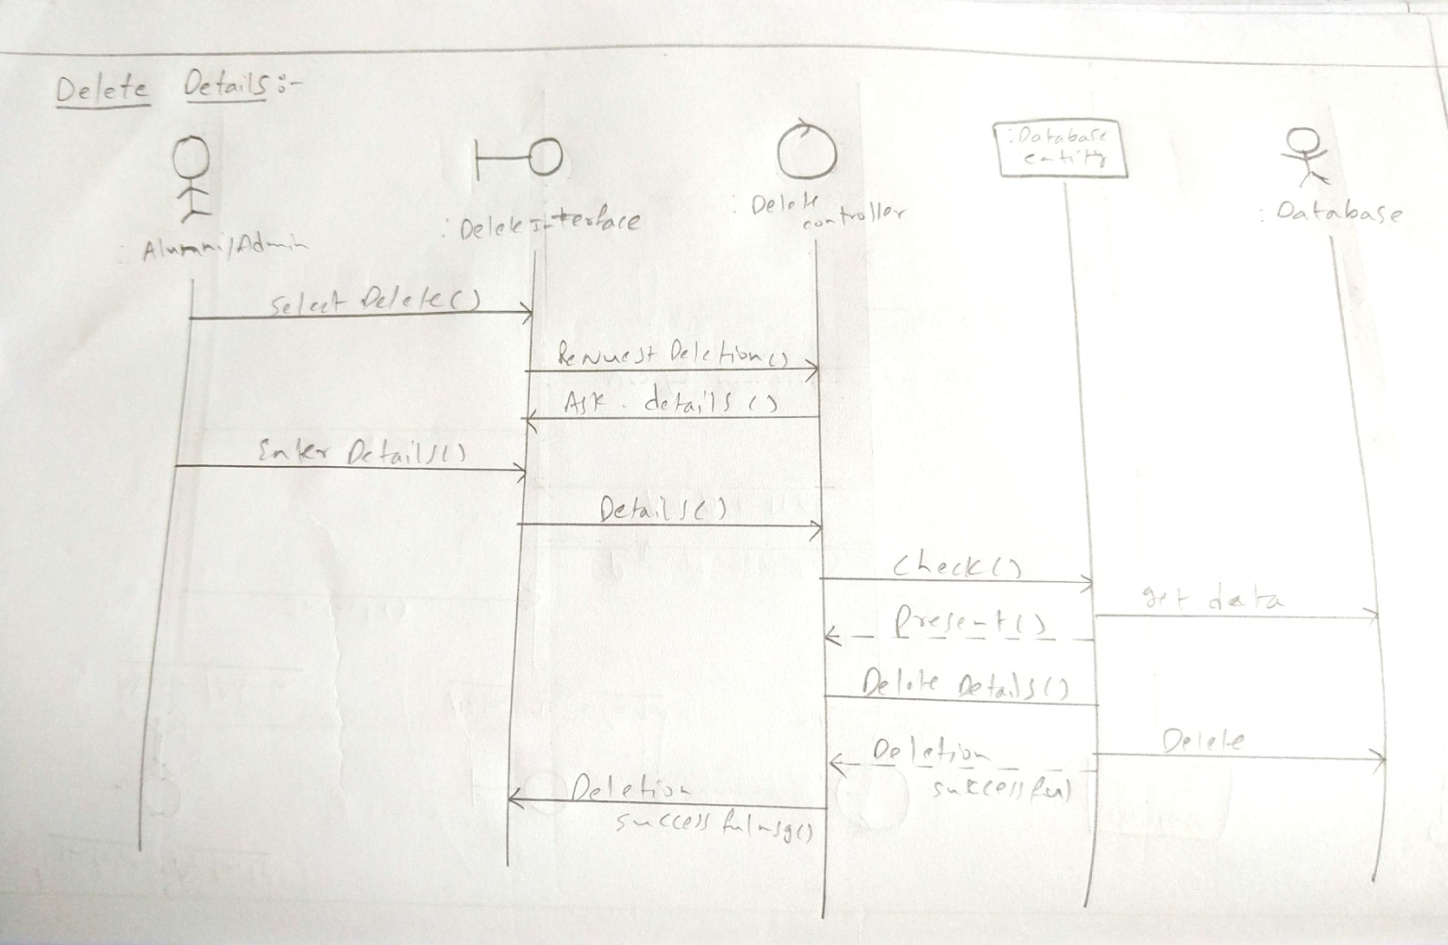 Delete Details:-
:Database
entity
: Delete
controller
: Database
: Delete Interface
: Alumni/Admin
Select Delete()
Request Deletion()
Ask details ()
Enter Details()
Details()
Check()
get data
Present()
Delete Details()
Delete
Deletion
successful
Deletion
successful msg()